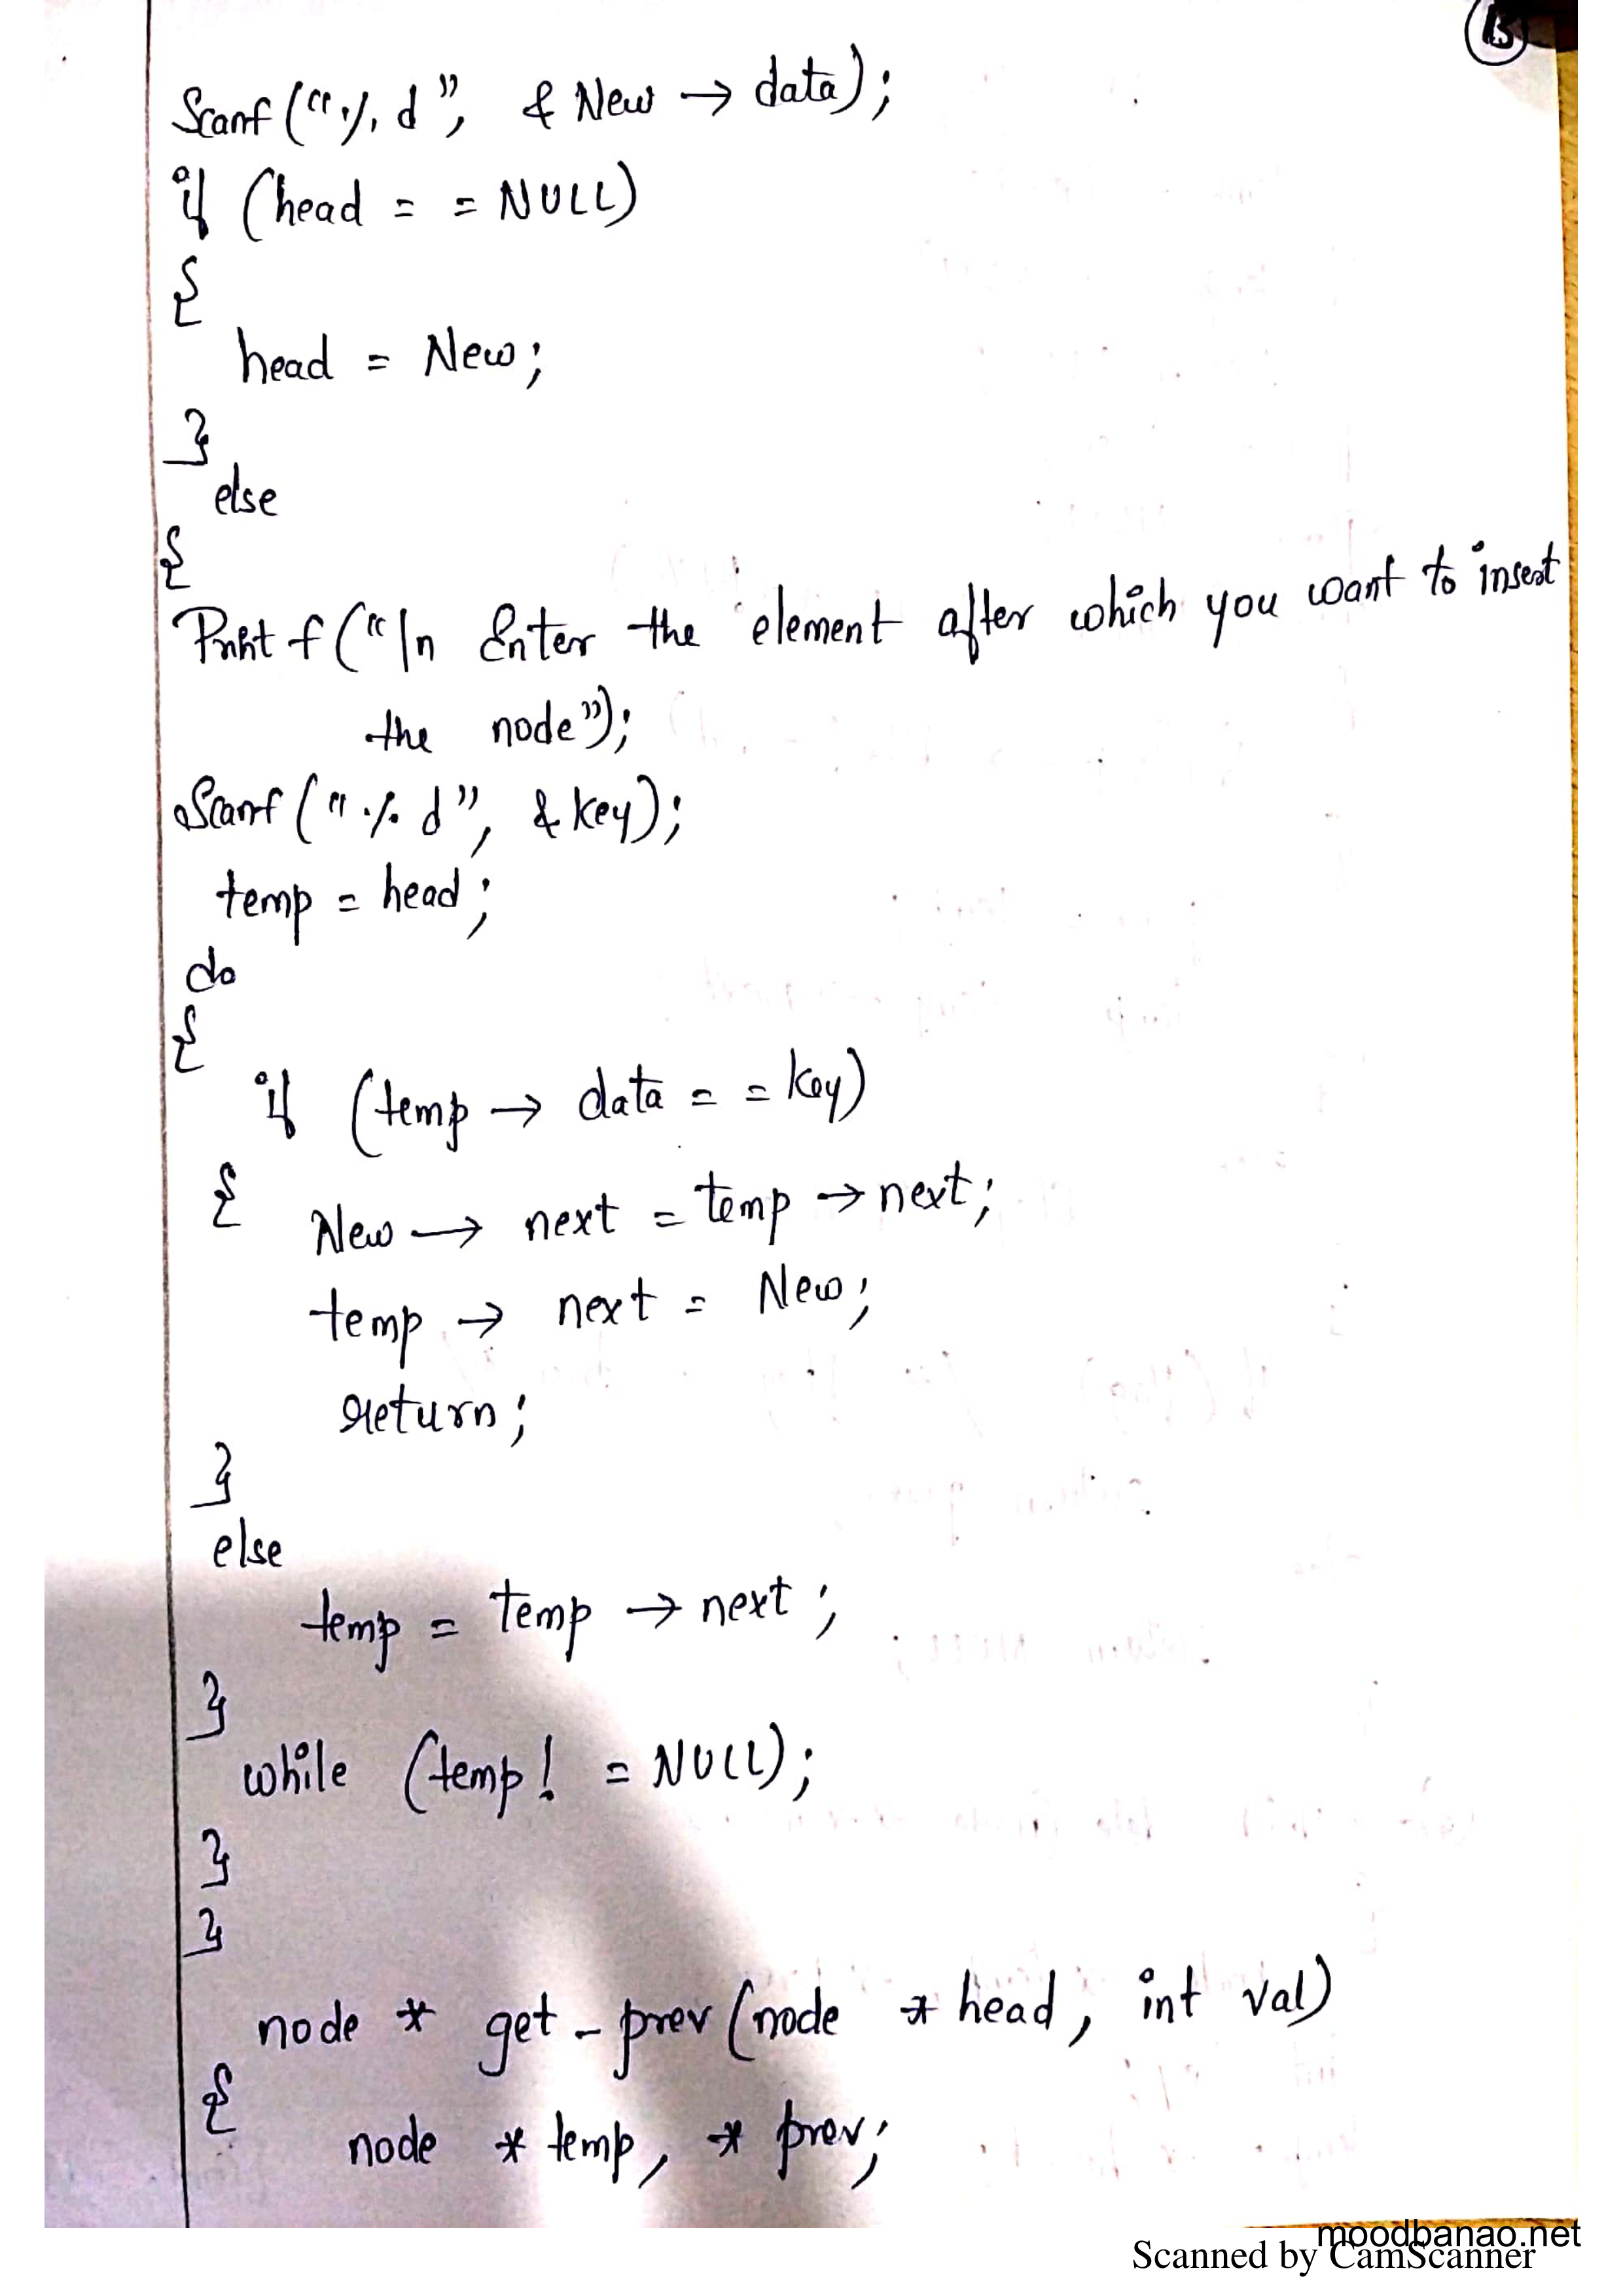 13
Scanf ("%d", & New → data);
if (head = = NULL)
{
head = New;
}
else
{
Printf ("\n Enter the element after which you want to insert
the node");
Scanf ("%d", & key);
temp = head;
do
{
if (temp → data = = key)
{ New → next = temp → next;
temp → next = New;
return;
}
else
temp = temp → next;
}
while (temp! = NULL);
}
}
node * get - prev (node * head, int val)
{
node * temp, * prev;
moodbanao.net
Scanned by CamScanner